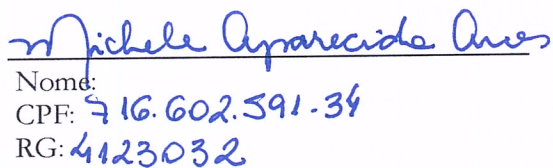 Michele Aparecida Aves
Nome:
CPF: 716.602.591-34
RG: 4123032